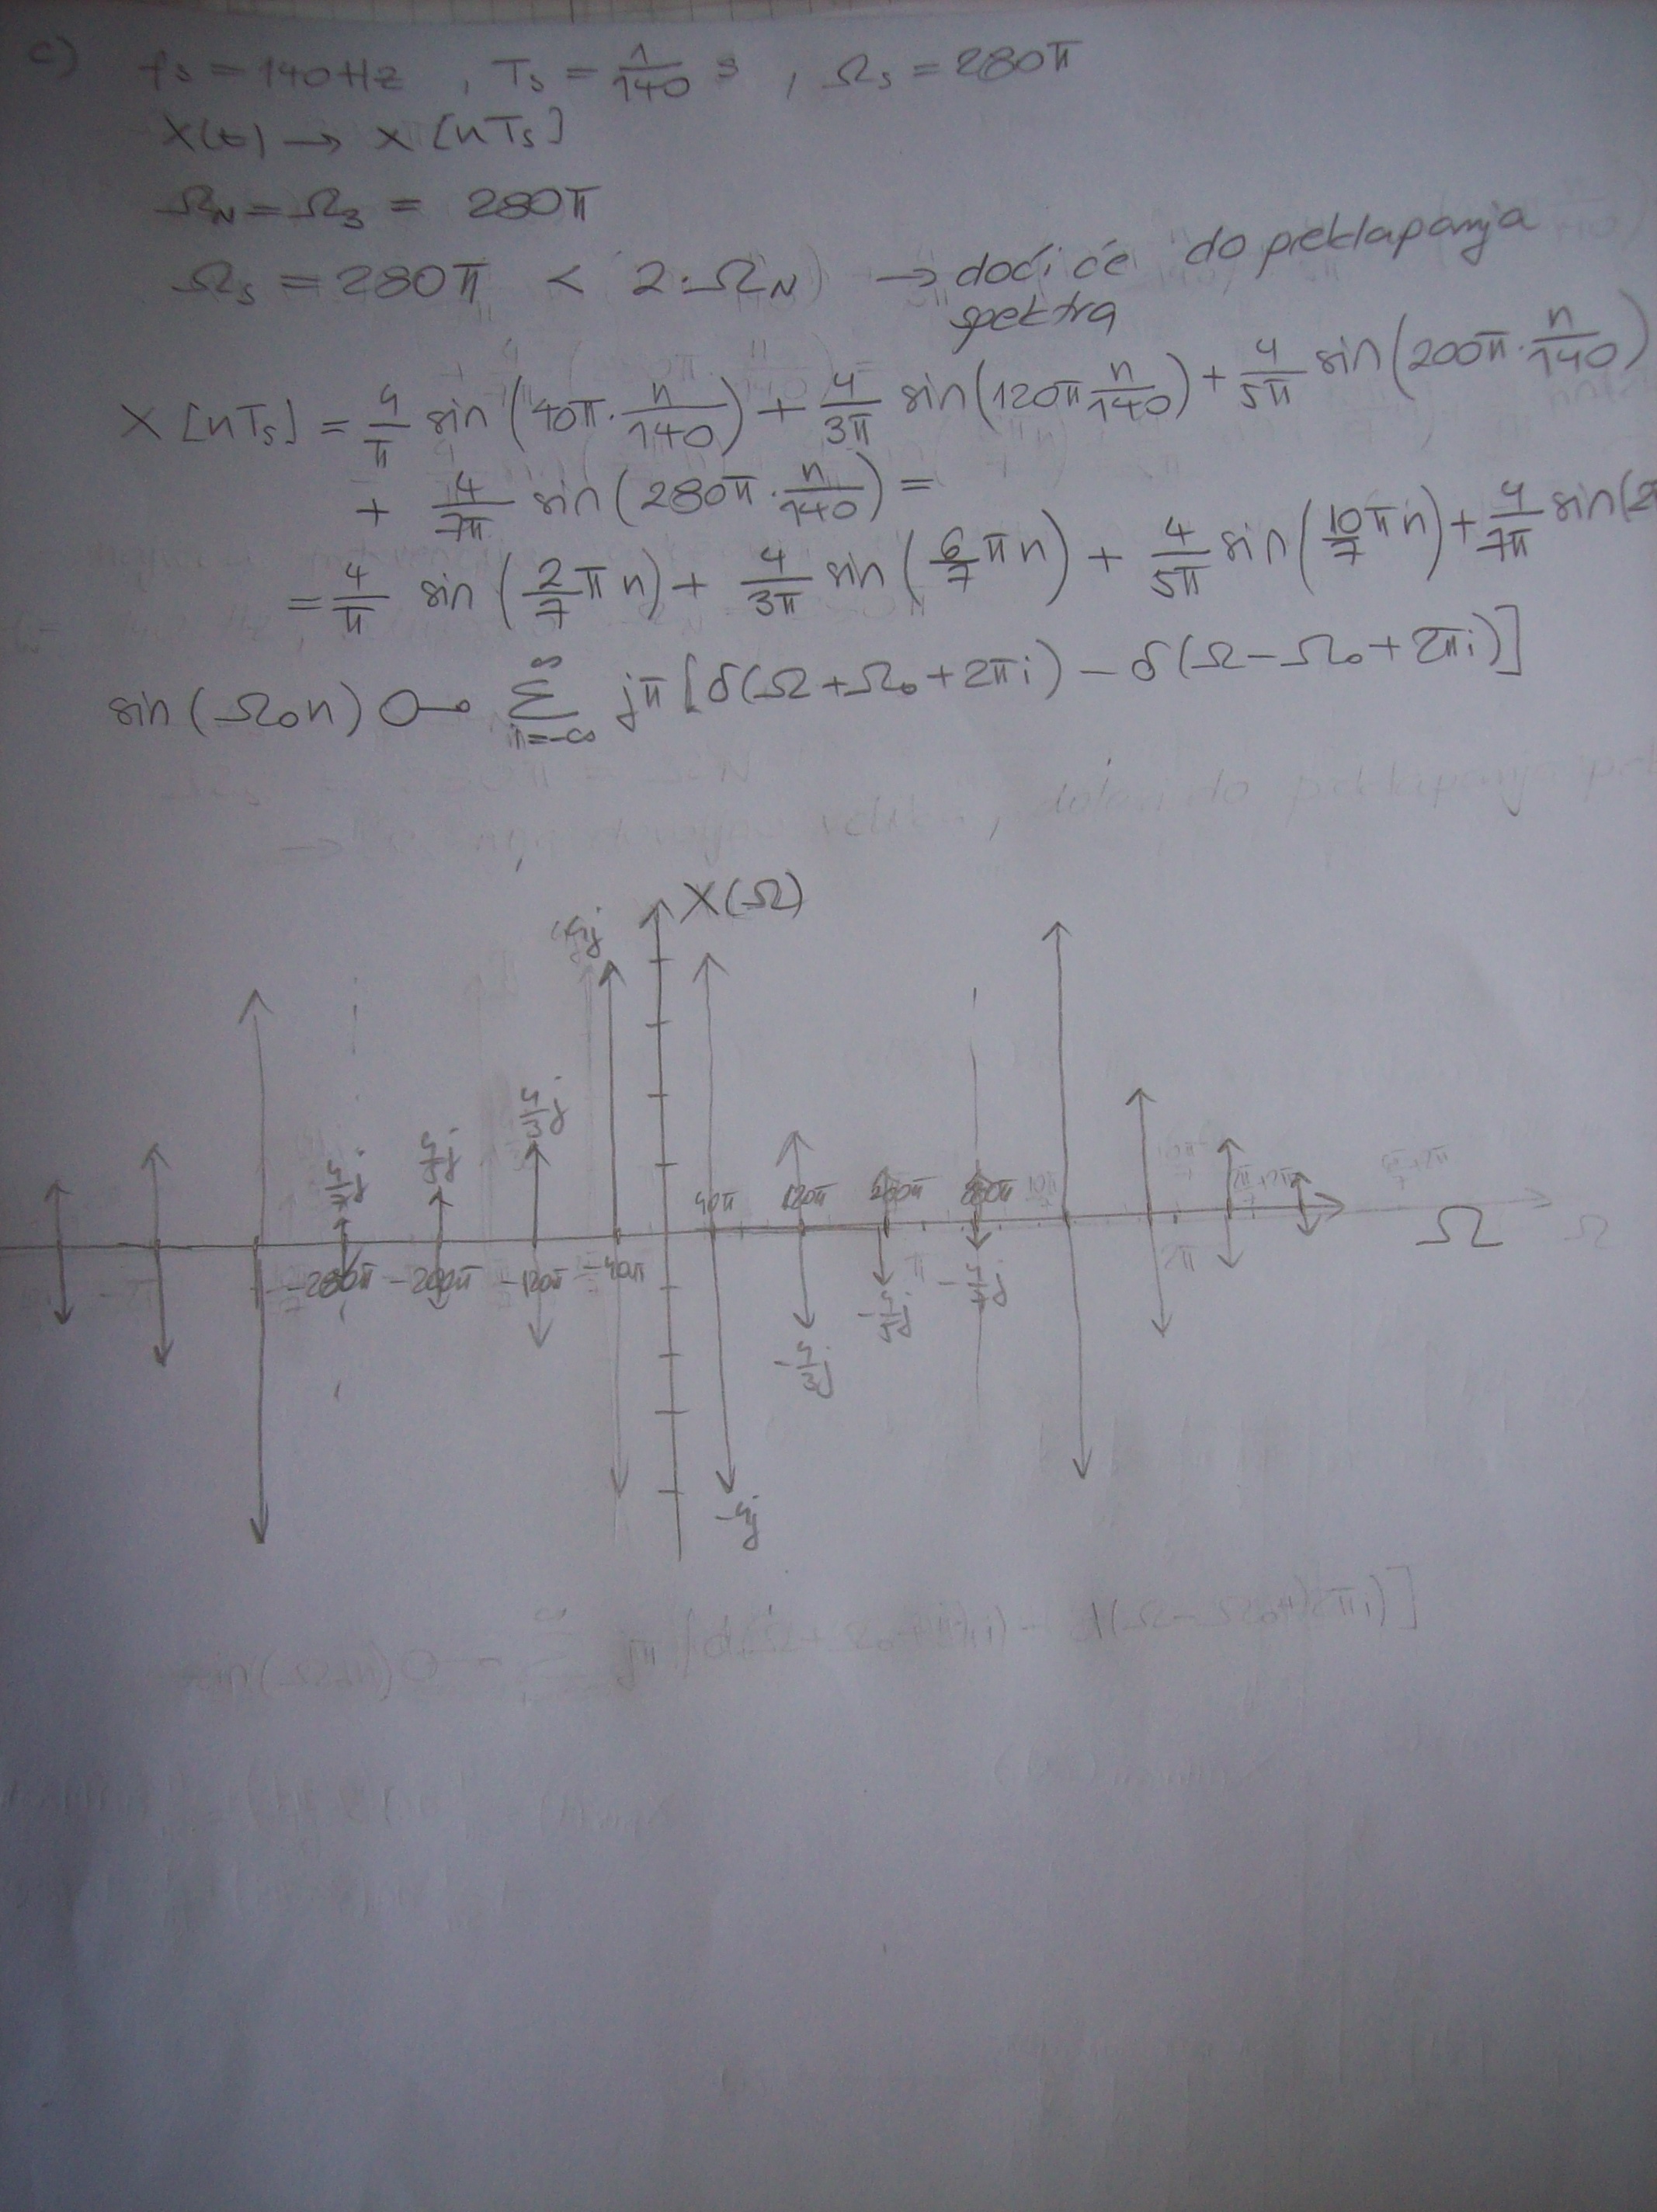 c) fs = 140 Hz , Ts = 1/140 s , Ωs = 280π
X(t) → X[nTs]
ΩN = Ω3 = 280π
Ωs = 280π < 2·ΩN → doći će do preklapanja
spektra
X[nTs] = 4/π sin(40π · n/140) + 4/3π sin(120π n/140) + 4/5π sin(200π · n/140)
+ 4/7π sin(280π · n/140) =
= 4/π sin(2/7 π n) + 4/3π sin(6/7 π n) + 4/5π sin(10/7 π n) + 4/7π sin(2
sin(Ω0n) ○–• Σ i=-∞ ∞ jπ [δ(Ω + Ω0 + 2πi) − δ(Ω − Ω0 + 2πi)]
X(Ω)
4j
4/3 j
4/5 j
4/7 j
40π 120π 200π 280π
Ω
-280π -200π -120π -40π
-4/7 j
-4/5 j
-4/3 j
-4j